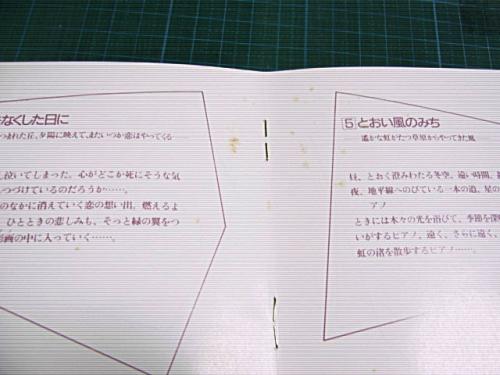 なくした日に
つまれた丘、夕陽に映えて、またいつか恋はやってくる
泣いてしまった。心がどこか死にそうな気
つづけているのだろうか……。
のなかに消えていく恋の想い出。燃えるよ
ひとときの悲しみも、そっと緑の翼をつ
画の中に入っていく……。
5 とおい風のみち
遥かな虹がたつ草原からやってきた風
昼、とおく澄みわたる冬空。遠い時間、
夜、地平線へのびている一本の道。星の
アノ
ときには木々の光を浴びて、季節を深
いがするピアノ。遠く、さらに遠く、
虹の渚を散歩するピアノ……。